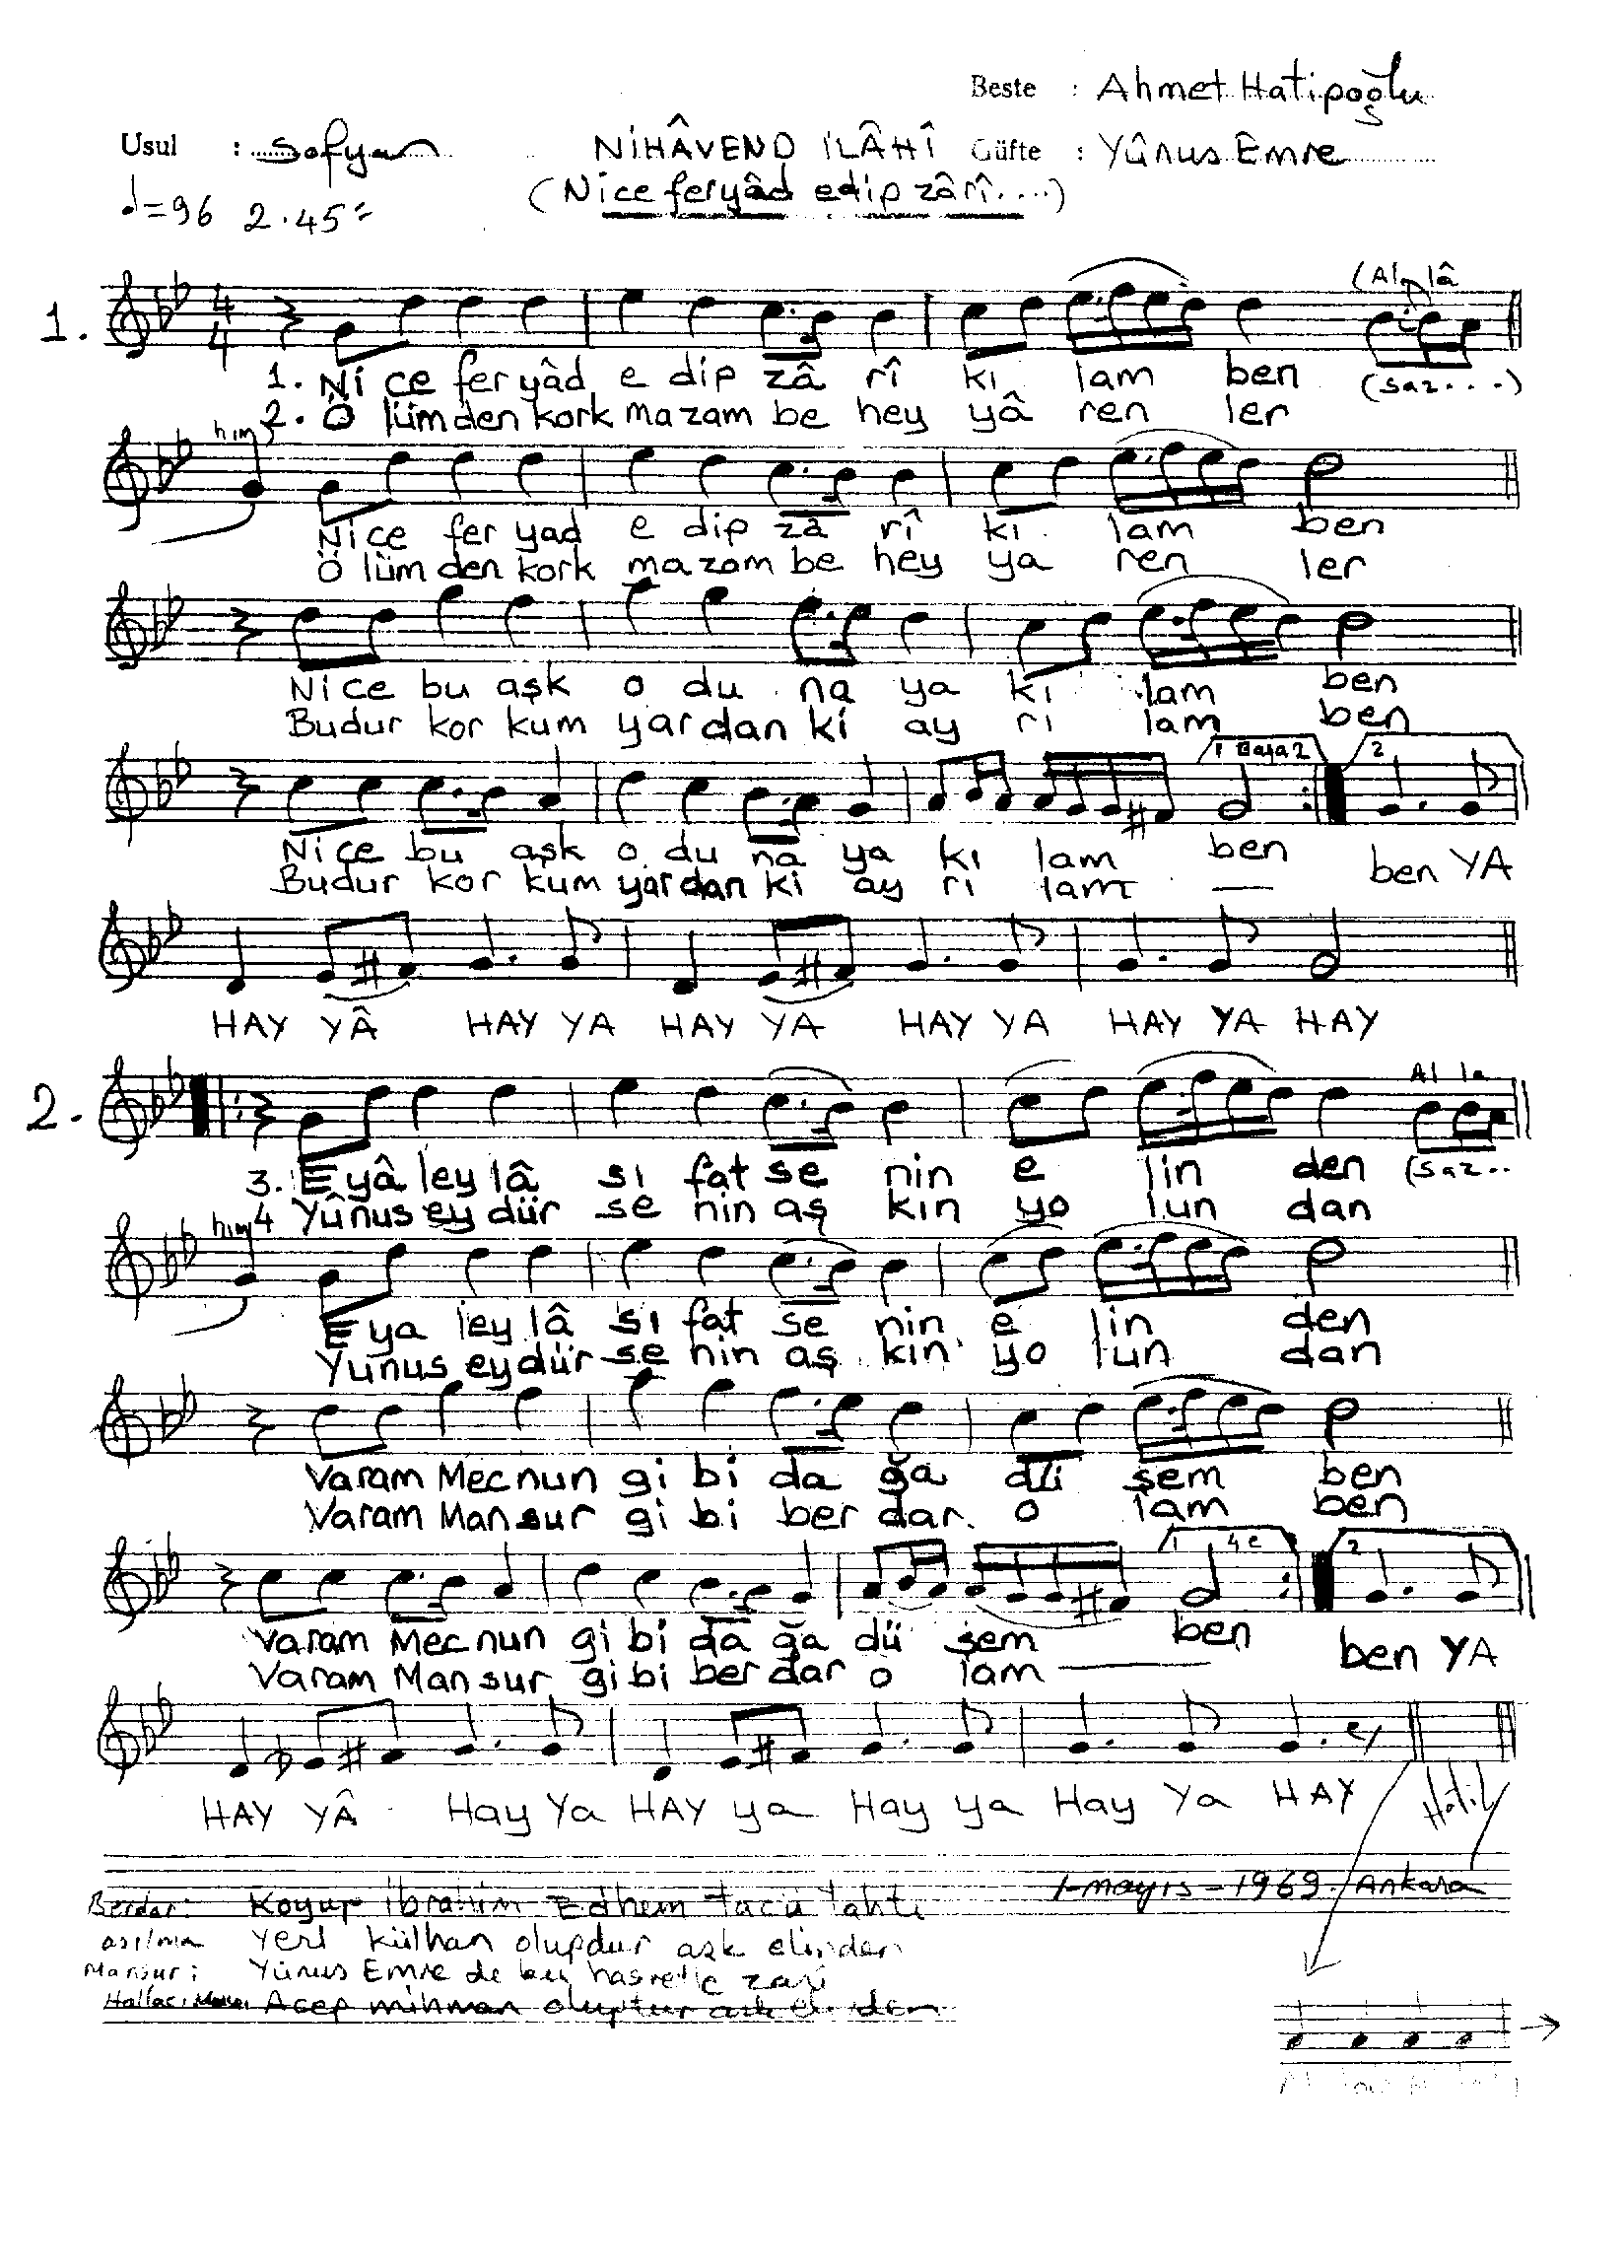 Beste : Ahmet Hatipoğlu
Usul : Sofyan NİHÂVEND İLÂHÎ Güfte : Yûnus Emre
(Nice feryâd edip zârî....)
♩=96 2.45"
(Al lâ
1. 4 4
1. Ni ce fer yâd e dip zâ rî kı lam ben (saz...)
2. Ö lüm den kork ma zam be hey yâ ren ler
him)
Ni ce fer yad e dip zâ rî kı lam ben
Ö lüm den kork ma zam be hey ya ren ler
Ni ce bu aşk o du na ya kı lam ben
Budur kor kum yar dan ki ay rı lam ben
1 Başa 2 2
Ni ce bu aşk o du na ya kı lam ben ben YA
Budur kor kum yar dan ki ay rı lam
HAY YÂ HAY YA HAY YA HAY YA HAY YA HAY
2. Al la
3. E yâ ley lâ sı fat se nin e lin den (saz..
4 Yûnus ey dür se nin aş kın yo lun dan
him
E ya ley lâ sı fat se nin e lin den
Yunus ey dür se nin aş kın yo lun dan
Varam Mecnun gi bi da ğa dü şem ben
Varam Mansur gi bi ber dar o lam ben
1 2
Varam Mecnun gi bi da ğa dü şem ben ben YA
Varam Mansur gi bi ber dar o lam
HAY YÂ Hay Ya HAY ya Hay ya Hay Ya HAY
1-mayıs-1969. Ankara
Berdar: Koyup İbrahim Edhem tacü tahtı
asılma Yeri külhan olupdur aşk elinden
Mansur: Yûnus Emre de bu hasretle zarî
Hallacı Acep mihman oluptur aşk elinden